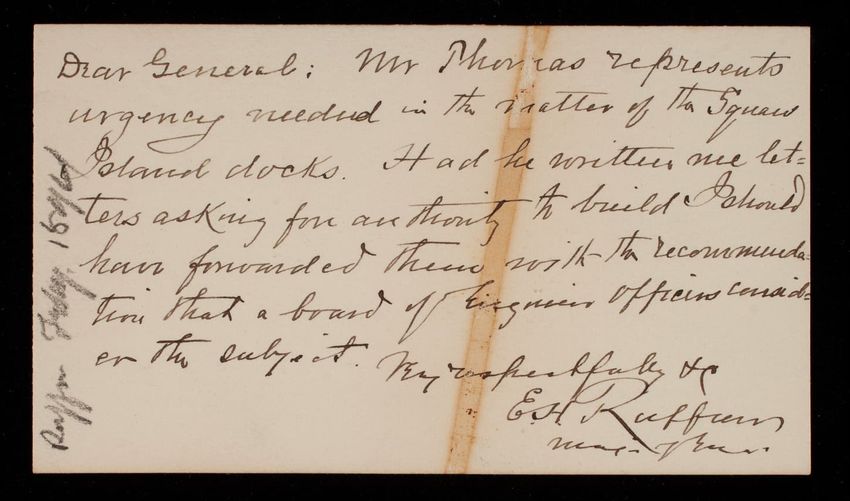 Dear General: Mr Thomas represents
urgency needed in the matter of the Squaw
Island docks. Had he written me let=
ters asking for authority to build I should
have forwarded them with the recommenda-
tion that a board of Engineer Officers consid=
er the subject.
Very respectfully &c
E.H. Ruffner
Maj. of Engr.
Ruffner